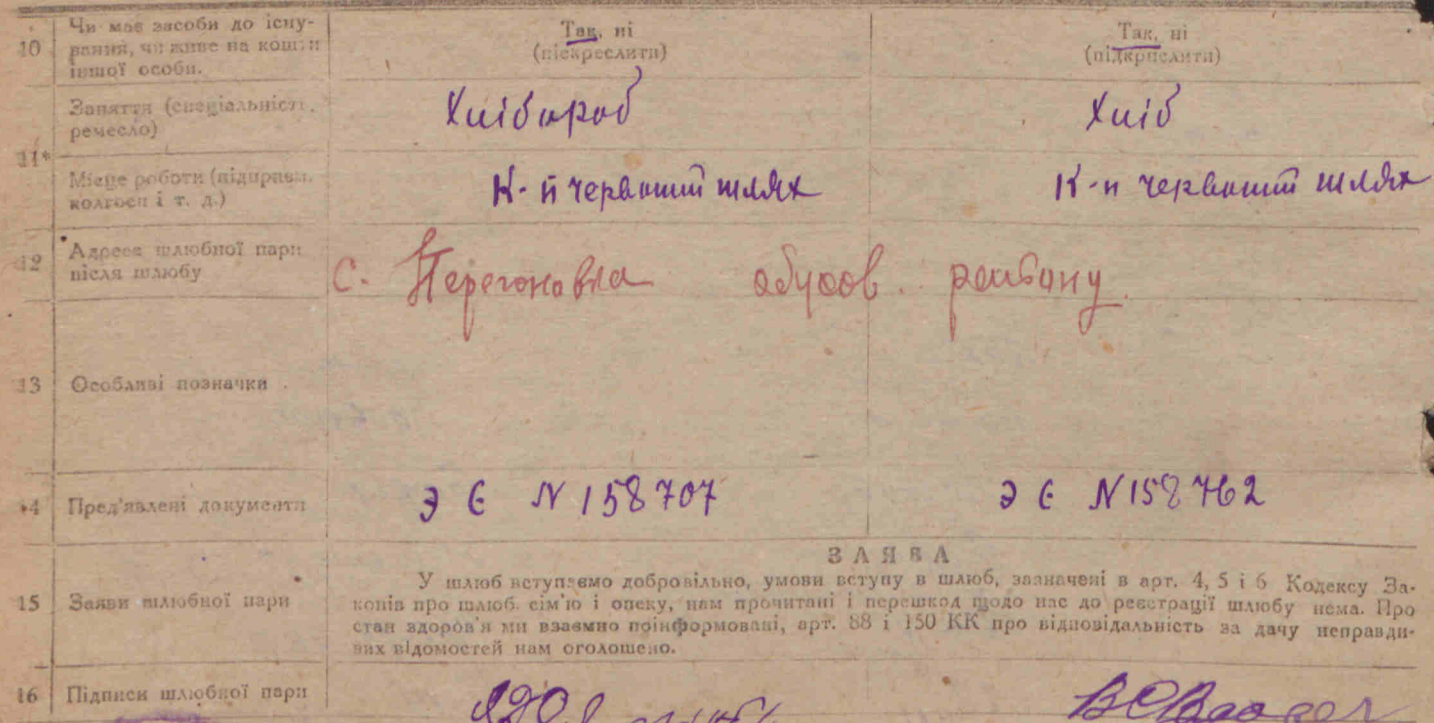 10 Чи має засоби до існу-
вання, чи живе на кошти
іншої особи.
Так, ні
(піскреслити)
Так, ні
(підкрислити)
Заняття (спеціальність,
ремесло)
Хлібороб
Хліб
11*
Місце роботи (підприєм.
колгосп і т. д.)
К-п червоний шлях
К-п червоний шлях
12 Адреса шлюбної пари
після шлюбу
С. Перегоновка обухов. району
13 Особливі позначки
14 Пред'явлені документи
Э Є N 158707
Э Є N 158762
15 Заяви шлюбної пари
ЗАЯВА
У шлюб вступаємо добровільно, умови вступу в шлюб, зазначені в арт. 4, 5 і 6 Кодексу За-
конів про шлюб, сім'ю і опеку, нам прочитані і перешкод щодо нас до реєстрації шлюбу нема. Про
стан здоров'я ми взаємно поінформовані, арт. 88 і 150 КК про відповідальність за дачу неправди-
вих відомостей нам оголошено.
16 Підписи шлюбної пари